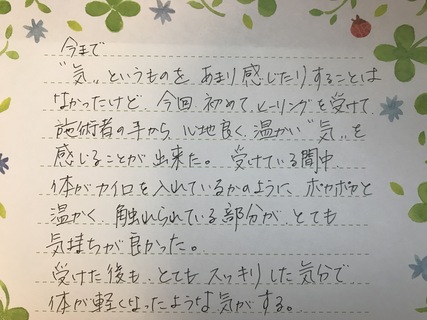 今まで
〝気〟というものを あまり感じたりすることは
なかったけど、今回 初めて ヒーリングを受けて
施術者の手から、心地良く、温かい〝気〟を
感じることが出来た。 受けている間中
体がカイロを入れているかのように、ポカポカと
温かく、触れられている部分が、とても
気持ちが良かった。
受けた後も、とてもスッキリした気分で
体が軽くなったような気がする。